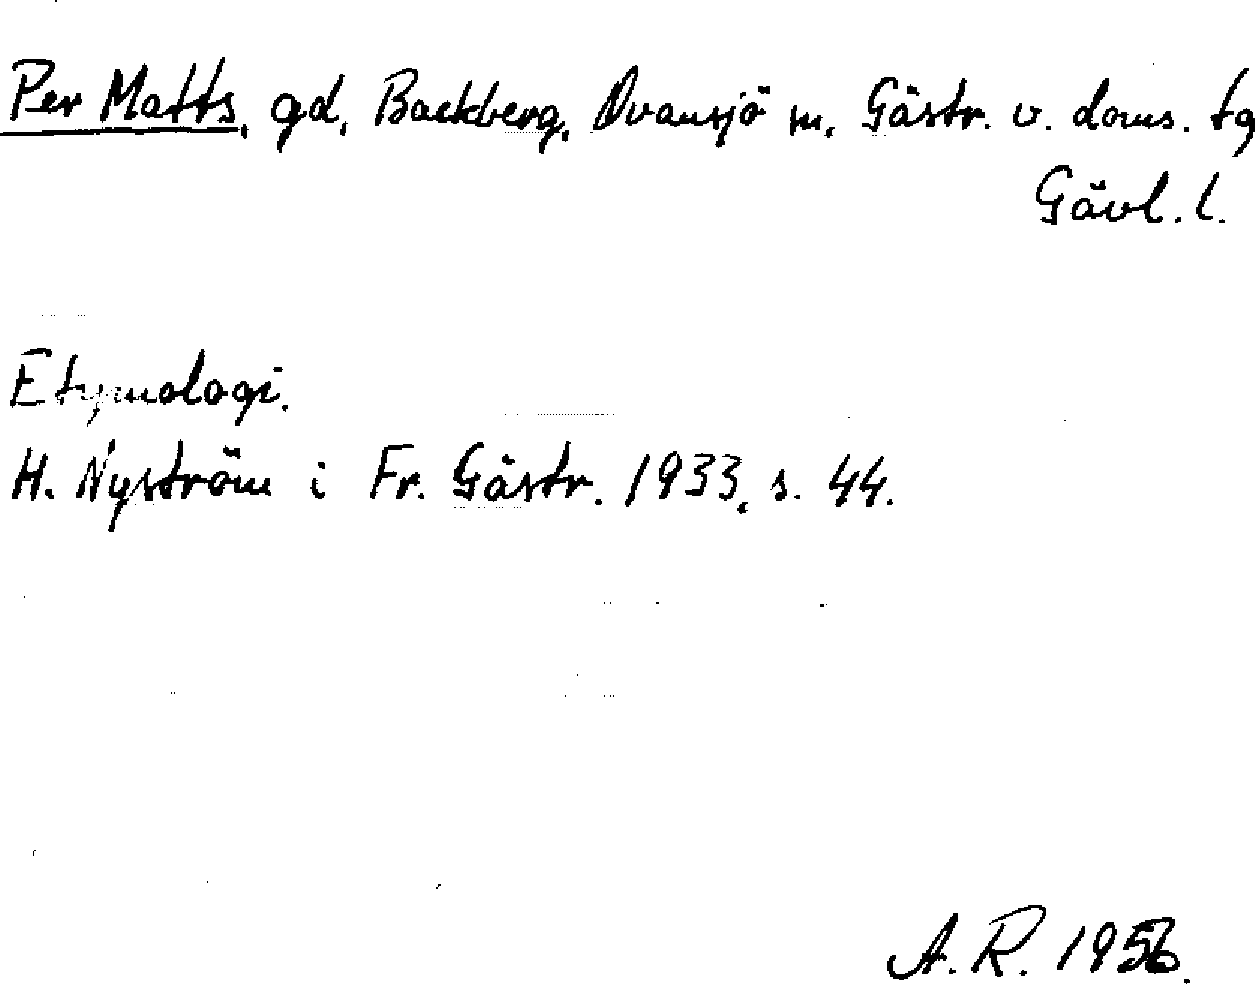 Per Matts, gd, Backberg, Ovansjö sn, Gästr. v. doms. tg
Gävl. l.
Etymologi.
H. Nyström i Fr. Gästr. 1933, s. 44.
A. R. 1956.